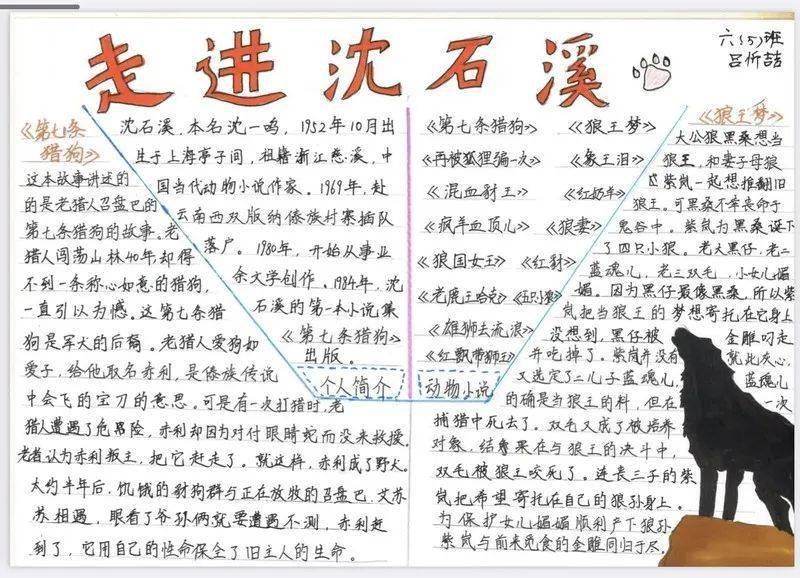 走进沈石溪
六(5)班
吕忻喆
《第七条
猎狗》
这本故事讲述的
的是老猎人召盘巴的
第七条猎狗的故事。老
猎人闯荡山林40年却得
不到一条称心如意的猎狗,
一直引以为憾。这第七条猎
狗是军犬的后裔。老猎人爱狗如
爱子,给他取名赤利,是傣族传说
中会飞的宝刀的意思。可是有一次打猎时,老
猎人遭遇了危险,赤利却因为对付眼睛蛇而没来救援。
老者认为赤利叛主,把它赶走了。就这样,赤利成了野犬。
大约半年后,饥饿的豺狗群与正在放牧的召盘巴、艾苏
苏相遇,眼看了爷孙俩就要遭遇不测,赤利赶
到了,它用自己的性命保全了旧主人的生命。
沈石溪,本名沈一鸣,1952年10月出
生于上海亭子间,祖籍浙江慈溪,中
国当代动物小说作家。1969年,赴
云南西双版纳傣族村寨插队
落户。1980年,开始从事业
余文学创作。1984年,沈
石溪的第一本小说集
《第七条猎狗》
出版。
个人简介
《第七条猎狗》《狼王梦》
《再被狐狸骗一次》《象王泪》
《混血豺王》《红奶羊》
《疯羊血顶儿》《狼妻》
《狼国女王》《红豺》
《老鹿王哈克》《五只小狼》
《雄狮去流浪》
《红飘带狮王》
动物小说
《狼王梦》
大公狼黑桑想当
狼王,和妻子母狼
紫岚一起想推翻旧
狼王。可黑桑不幸丧命于
鬼谷中。紫岚为黑桑诞下
了四只小狼。老大黑仔,老二
蓝魂儿,老三双毛,小女儿媚
媚。因为黑仔最像黑桑,所以紫
岚把当狼王的梦想寄托在它身上
没想到,黑仔被金雕叼走
并吃掉了。紫岚并没有就此灰心,
又选定了二儿子蓝魂儿,蓝魂儿
的确是当狼王的料,但在一次
捕猎中死去了。双毛又成了被培养
对象,结果在与狼王的决斗中,
双毛被狼王咬死了。连丧三子的紫
岚把希望寄托在自己的狼孙身上。
为保护女儿媚媚顺利产下狼孙
紫岚与前来觅食的金雕同归于尽。